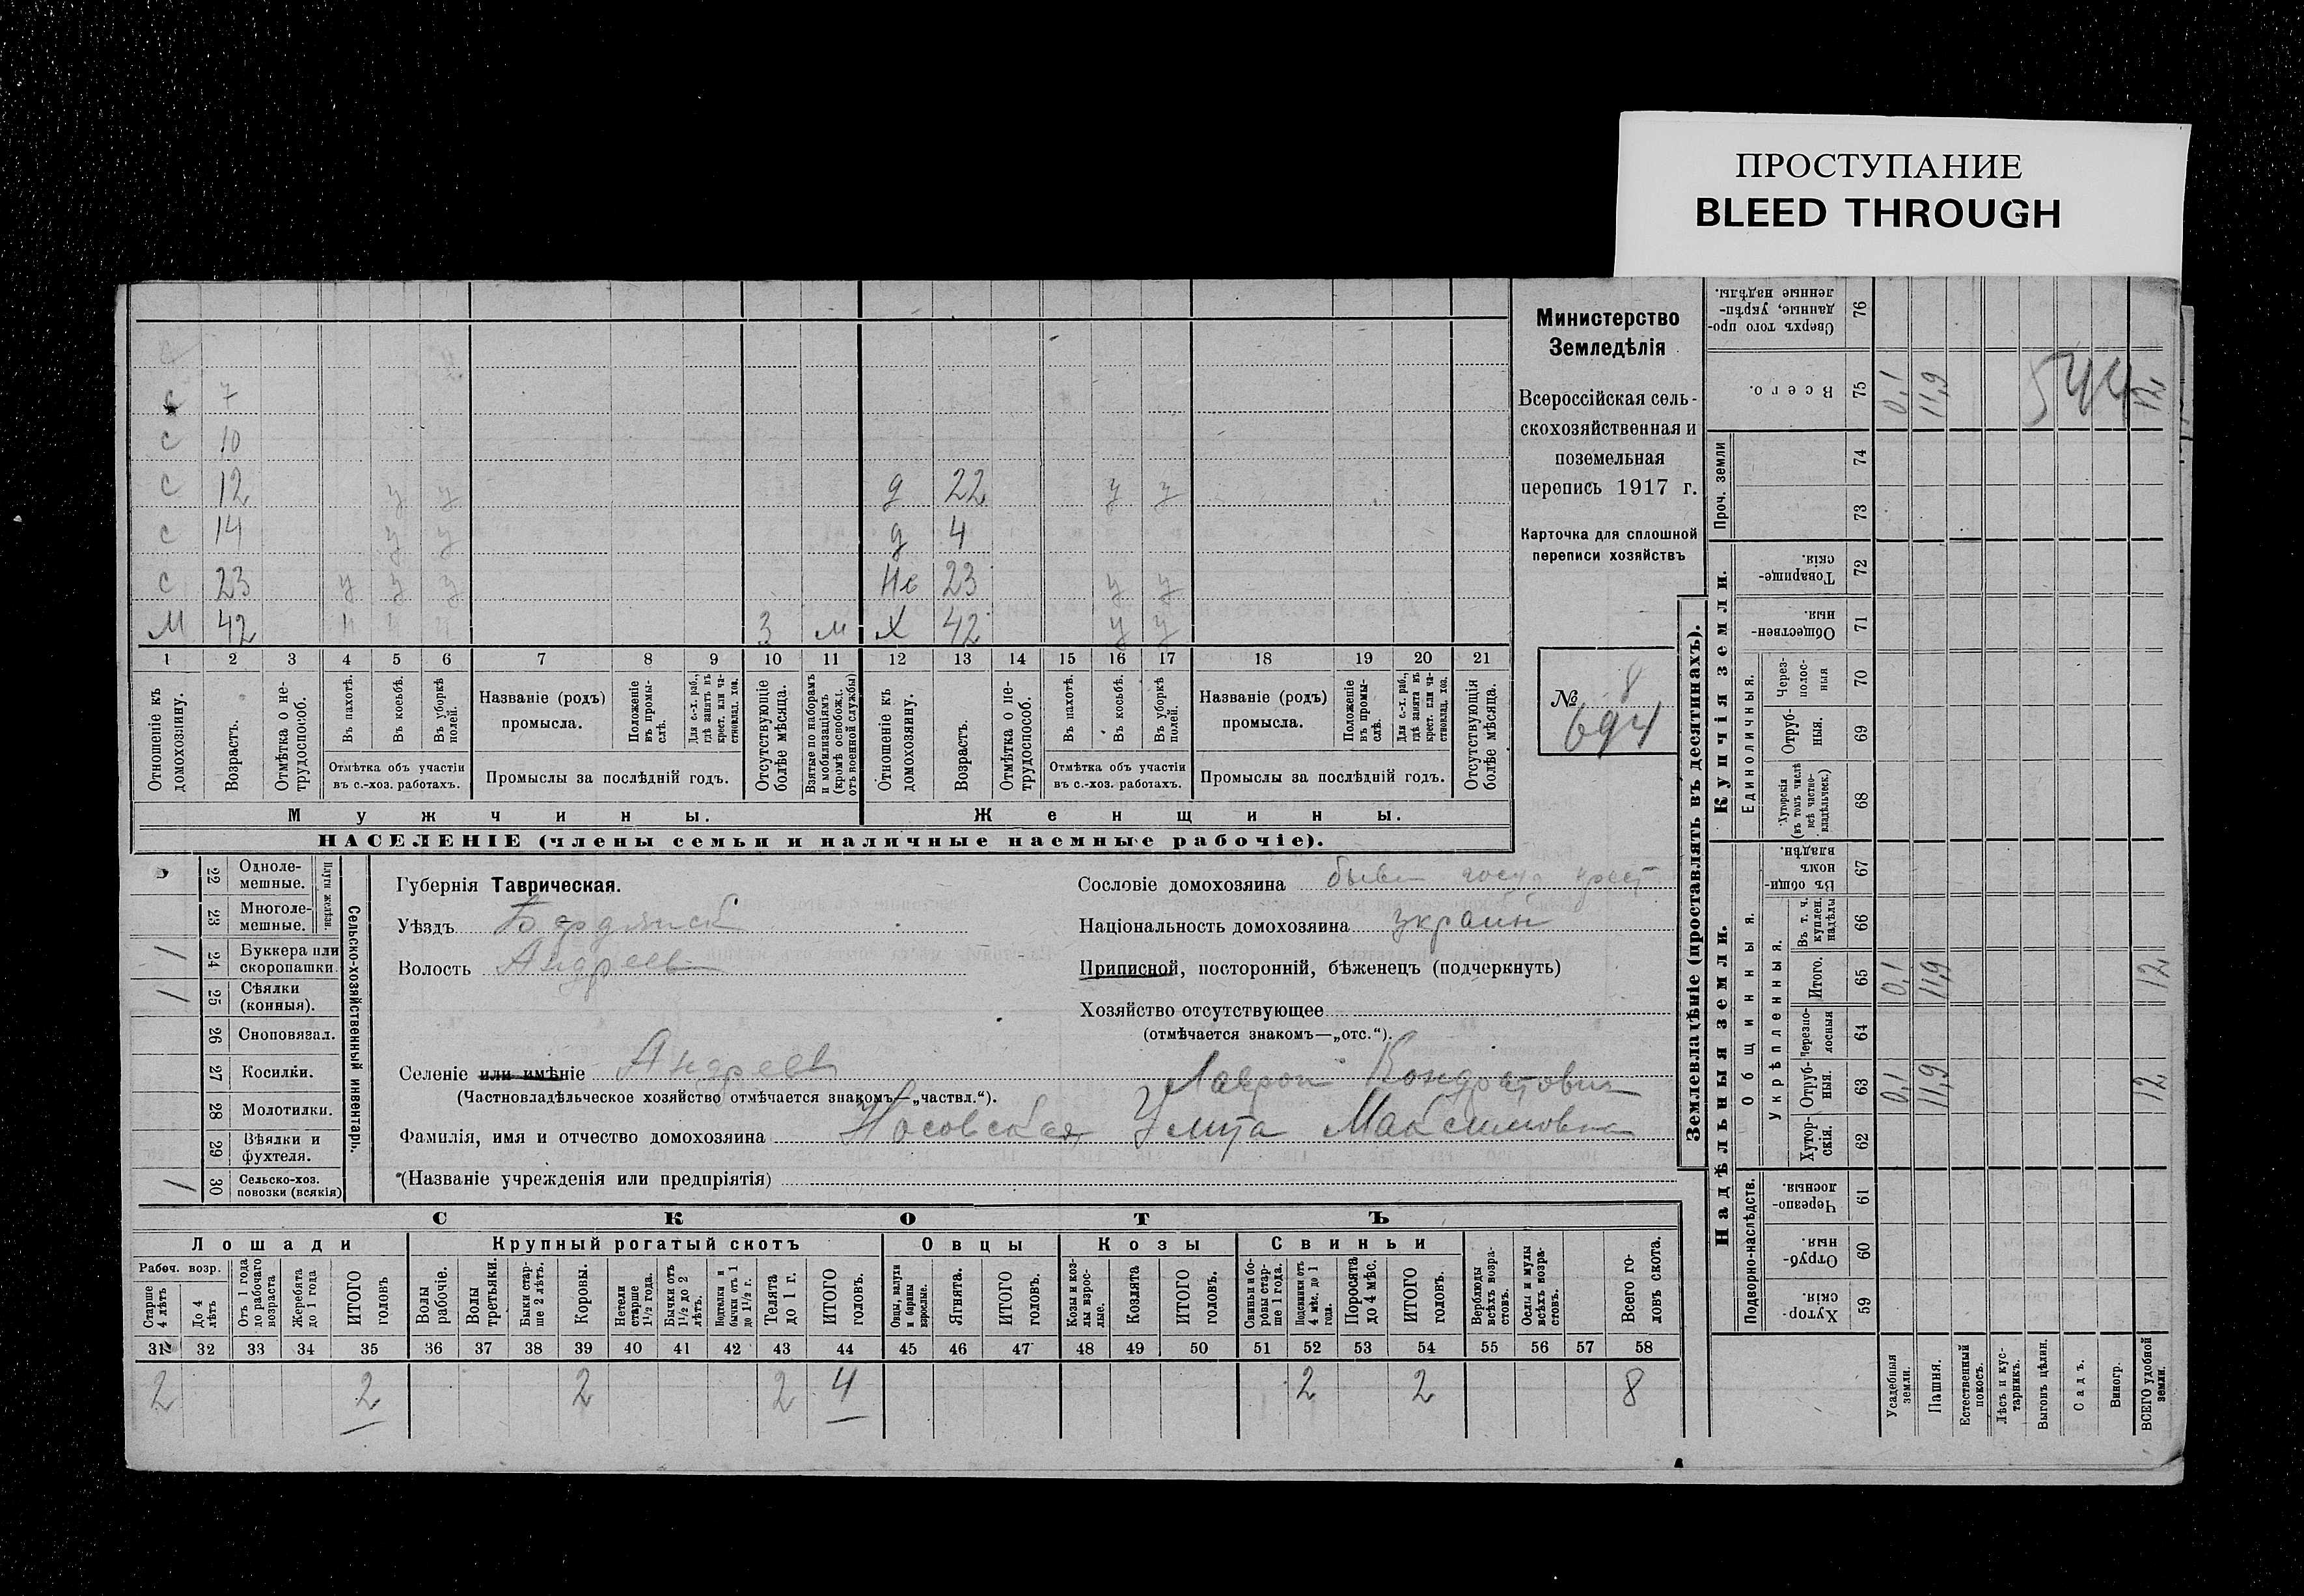 ПРОСТУПАНИЕ
BLEED THROUGH
с
с 7
с 10
с 12 у у д 22 у у
с 14 у у д 4
с 23 у у у Не 23 у у
М 42 3 м Х 42 у у
1 2 3 4 5 6 7 8 9 10 11 12 13 14 15 16 17 18 19 20 21
Отношеніе къ домохозяину.
Возрастъ.
Отмѣтка о нетрудоспособ.
Въ пахотѣ.
Въ косьбѣ.
Въ уборкѣ полей.
Отмѣтка объ участіи
въ с.-хоз. работахъ.
Названіе (родъ)
промысла.
Положеніе въ промыслѣ.
Для с.-х. раб., гдѣ занятъ въ крест. или частновлад. хоз.
Промыслы за послѣдній годъ.
Отсутствующіе болѣе мѣсяца.
Взятые по наборамъ и мобилизаціямъ (кромѣ освобожд. отъ военной службы)
Отношеніе къ домохозяину.
Возрастъ.
Отмѣтка о нетрудоспособ.
Въ пахотѣ.
Въ косьбѣ.
Въ уборкѣ полей.
Отмѣтка объ участіи
въ с.-хоз. работахъ.
Названіе (родъ)
промысла.
Положеніе въ промыслѣ.
Для с.-х. раб., гдѣ занята въ крест. или частновлад. хоз.
Промыслы за послѣдній годъ.
Отсутствующія болѣе мѣсяца.
Мужчины. Женщины.
НАСЕЛЕНІЕ (члены семьи и наличные наемные рабочіе).
Министерство
Земледѣлія
Всероссійская сель-
скохозяйственная и
поземельная
перепись 1917 г.
Карточка для сплошной
переписи хозяйствъ
№ 8
694
Сельско-хозяйственный инвентарь.
Плуги желѣзн.
22 Одноле-
мешные.
23 Многоле-
мешные.
1 24 Буккера или
скоропашки.
1 25 Сѣялки
(конныя).
26 Сноповязал.
27 Косилки.
28 Молотилки.
29 Вѣялки и
фухтеля.
1 30 Сельско-хоз.
повозки (всякія)
Губернія Таврическая.
Уѣздъ Бердянск
Волость Андреев
Селеніе или имѣніе Андреев
(Частновладѣльческое хозяйство отмѣчается знакомъ—„частвл.“).
Лаврон Кондратович
Фамилія, имя и отчество домохозяина Носовская Максимовна
(Названіе учрежденія или предпріятія)
Сословіе домохозяина бывш госуд крест
Національность домохозяина украин
Приписной, посторонній, бѣженецъ (подчеркнуть)
Хозяйство отсутствующее
(отмѣчается знакомъ—„отс.“).
СКОТЪ
Лошади Крупный рогатый скотъ Овцы Козы Свиньи
Рабоч. возр.
Старше 4 лѣтъ
До 4 лѣтъ
Отъ 1 года до рабочаго возраста
Жеребята до 1 года
ИТОГО головъ
Волы рабочіе.
Волы третьяки.
Быки старше 2 лѣтъ.
Коровы.
Нетели старше 1½ года.
Бычки отъ 1½ до 2 лѣтъ.
Подтелки и бычки отъ 1 до 1½ г.
Телята до 1 г.
ИТОГО головъ.
Овцы, валухи и бараны взрослые.
Ягнята.
ИТОГО головъ.
Козы и козлы взрослые.
Козлята
ИТОГО головъ.
Свиньи и боровы старше 1 года.
Подсвинки отъ 4 мѣс. до 1 года.
Поросята до 4 мѣс.
ИТОГО головъ.
Верблюды всѣхъ возрастовъ.
Ослы и мулы всѣхъ возрастовъ.
Всего головъ скота.
31 32 33 34 35 36 37 38 39 40 41 42 43 44 45 46 47 48 49 50 51 52 53 54 55 56 57 58
2 2 2 2 4 2 2 8
Землевладѣніе (проставлять въ десятинахъ).
Надѣльныя земли. Купчія земли. Проч. земли
Подворно-наслѣдств.
Общинныя.
Укрѣпленныя.
Единоличныя.
Сверхъ того проданные, укрѣпленные надѣлы. 76
Всего. 75 0,1 11,9 12,
544
74
73
Товарищескія. 72
Общественныя. 71
Черезполосныя 70
Отрубныя. 69
Хуторскія (въ томъ числѣ всѣ частновладѣльческ.) 68
Въ общинномъ владѣн. 67
Въ т. ч. куплен. надѣлы 66
Итого. 65 0,1 11,9 12,
Черезполосныя 64
Отрубныя. 63 0,1 11,9 12,
Хуторскія. 62
Черезполосныя. 61
Отрубныя. 60
Хуторскія. 59
Усадебныя земли.
Пашня.
Естественный покосъ.
Лѣсъ и кустарникъ.
Выгонъ цѣлин.
Садъ.
Виногр.
ВСЕГО удобной земли.